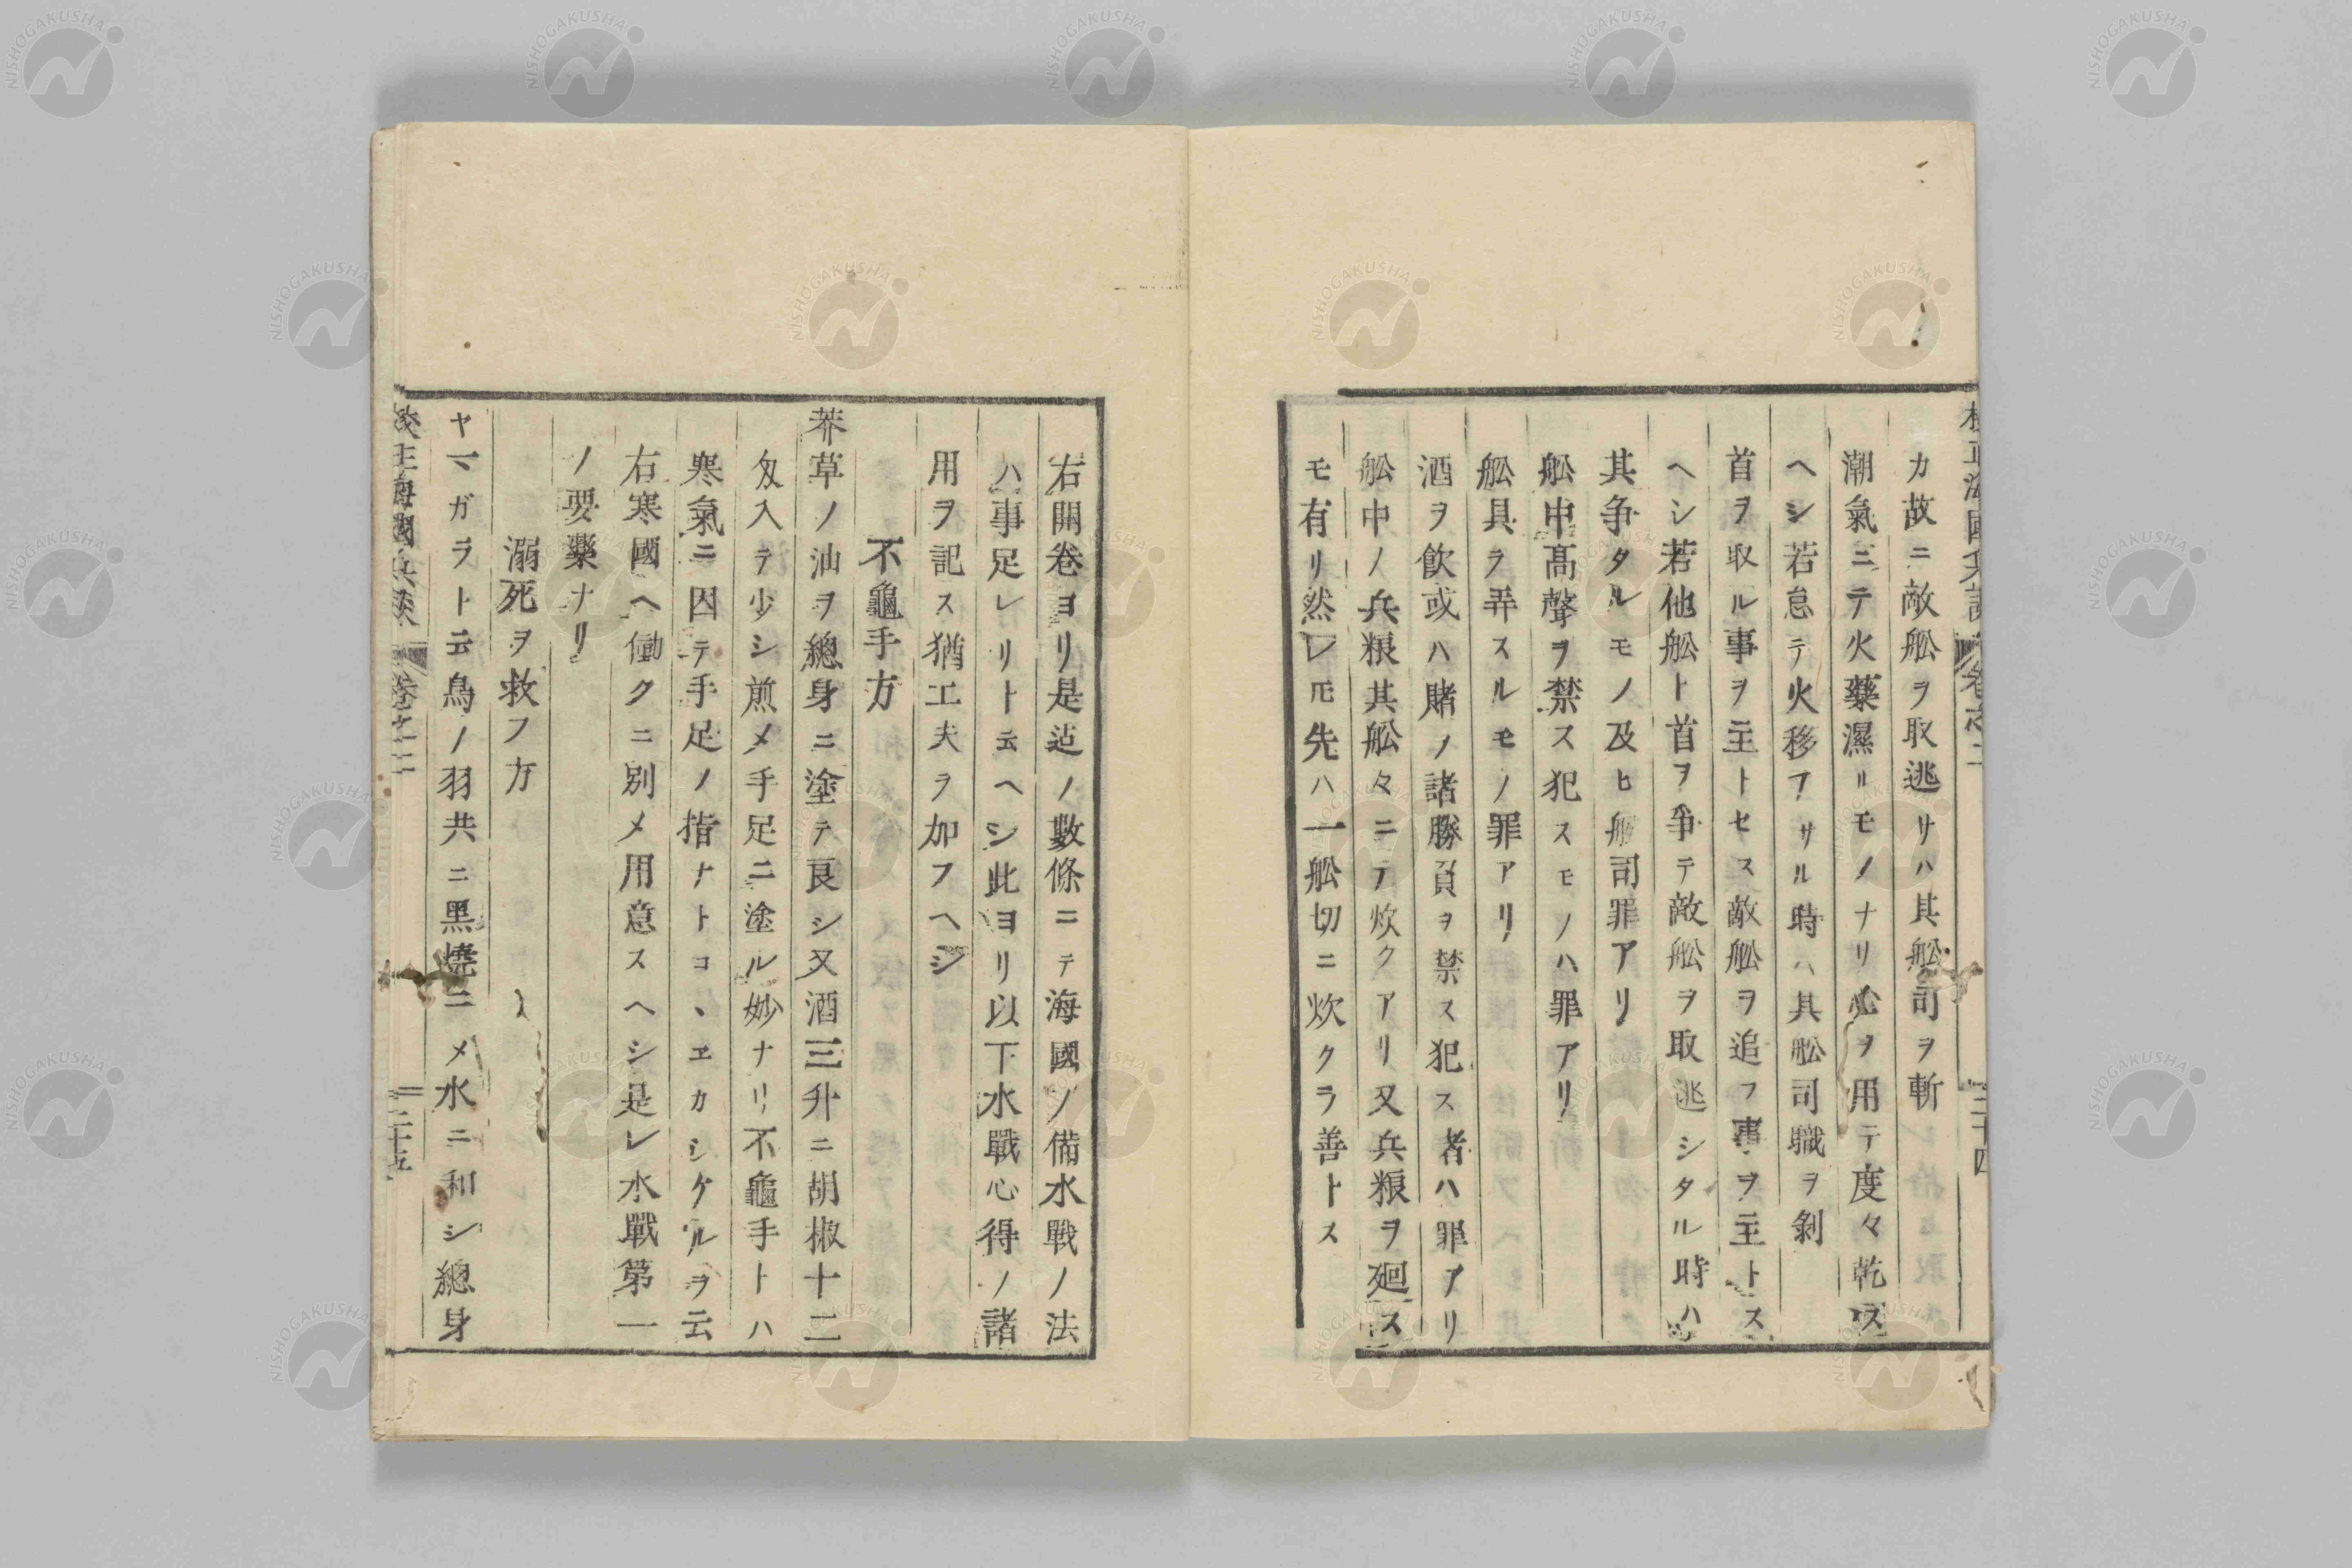 カ故ニ敵舩ヲ取逃サハ其舩司ヲ斬
潮氣ニテ火藥濕ルモノナリ心ヲ用テ度々乾ス
ヘシ若怠テ火移フサル時ハ其舩司職ヲ剝
首ヲ取ル事ヲ主トセス敵舩ヲ追フ事ヲ主トス
ヘシ若他舩ト首ヲ爭テ敵舩ヲ取逃シタル時ハ
其争タルモノ及ヒ舩司罪アリ
舩中髙聲ヲ禁ス犯スモノハ罪アリ
舩具ヲ弄スルモノ罪アリ
酒ヲ飲或ハ賭ノ諸勝負ヲ禁ス犯ス者ハ罪アリ
舩中ノ兵粮其舩々ニテ炊クアリ又兵粮ヲ廻ス
モ有リ然レ𪜈先ハ一舩切ニ炊クヲ善トス
右開卷ヨリ是迠ノ數條ニテ海國ノ備水戰ノ法
ハ事足レリト云ヘシ此ヨリ以下水戰心得ノ諸
用ヲ記ス猶工夫ヲ加フヘシ
不龜手方
莽草ノ油ヲ總身ニ塗テ良シ又酒三升ニ胡椒十二
匁入テ少シ煎メ手足ニ塗ル妙ナリ不龜手トハ
寒氣ニ因テ手足ノ指ナトコヽヱカシケルヲ云
右寒國ヘ働クニ別メ用意スヘシ是レ水戰第一
ノ要藥ナリ
溺死ヲ救フ方
ヤマガラト云鳥ノ羽共ニ黑燒ニメ水ニ和シ總身
校正海國兵談 卷之二 二十五
NISHOGAKUSHA